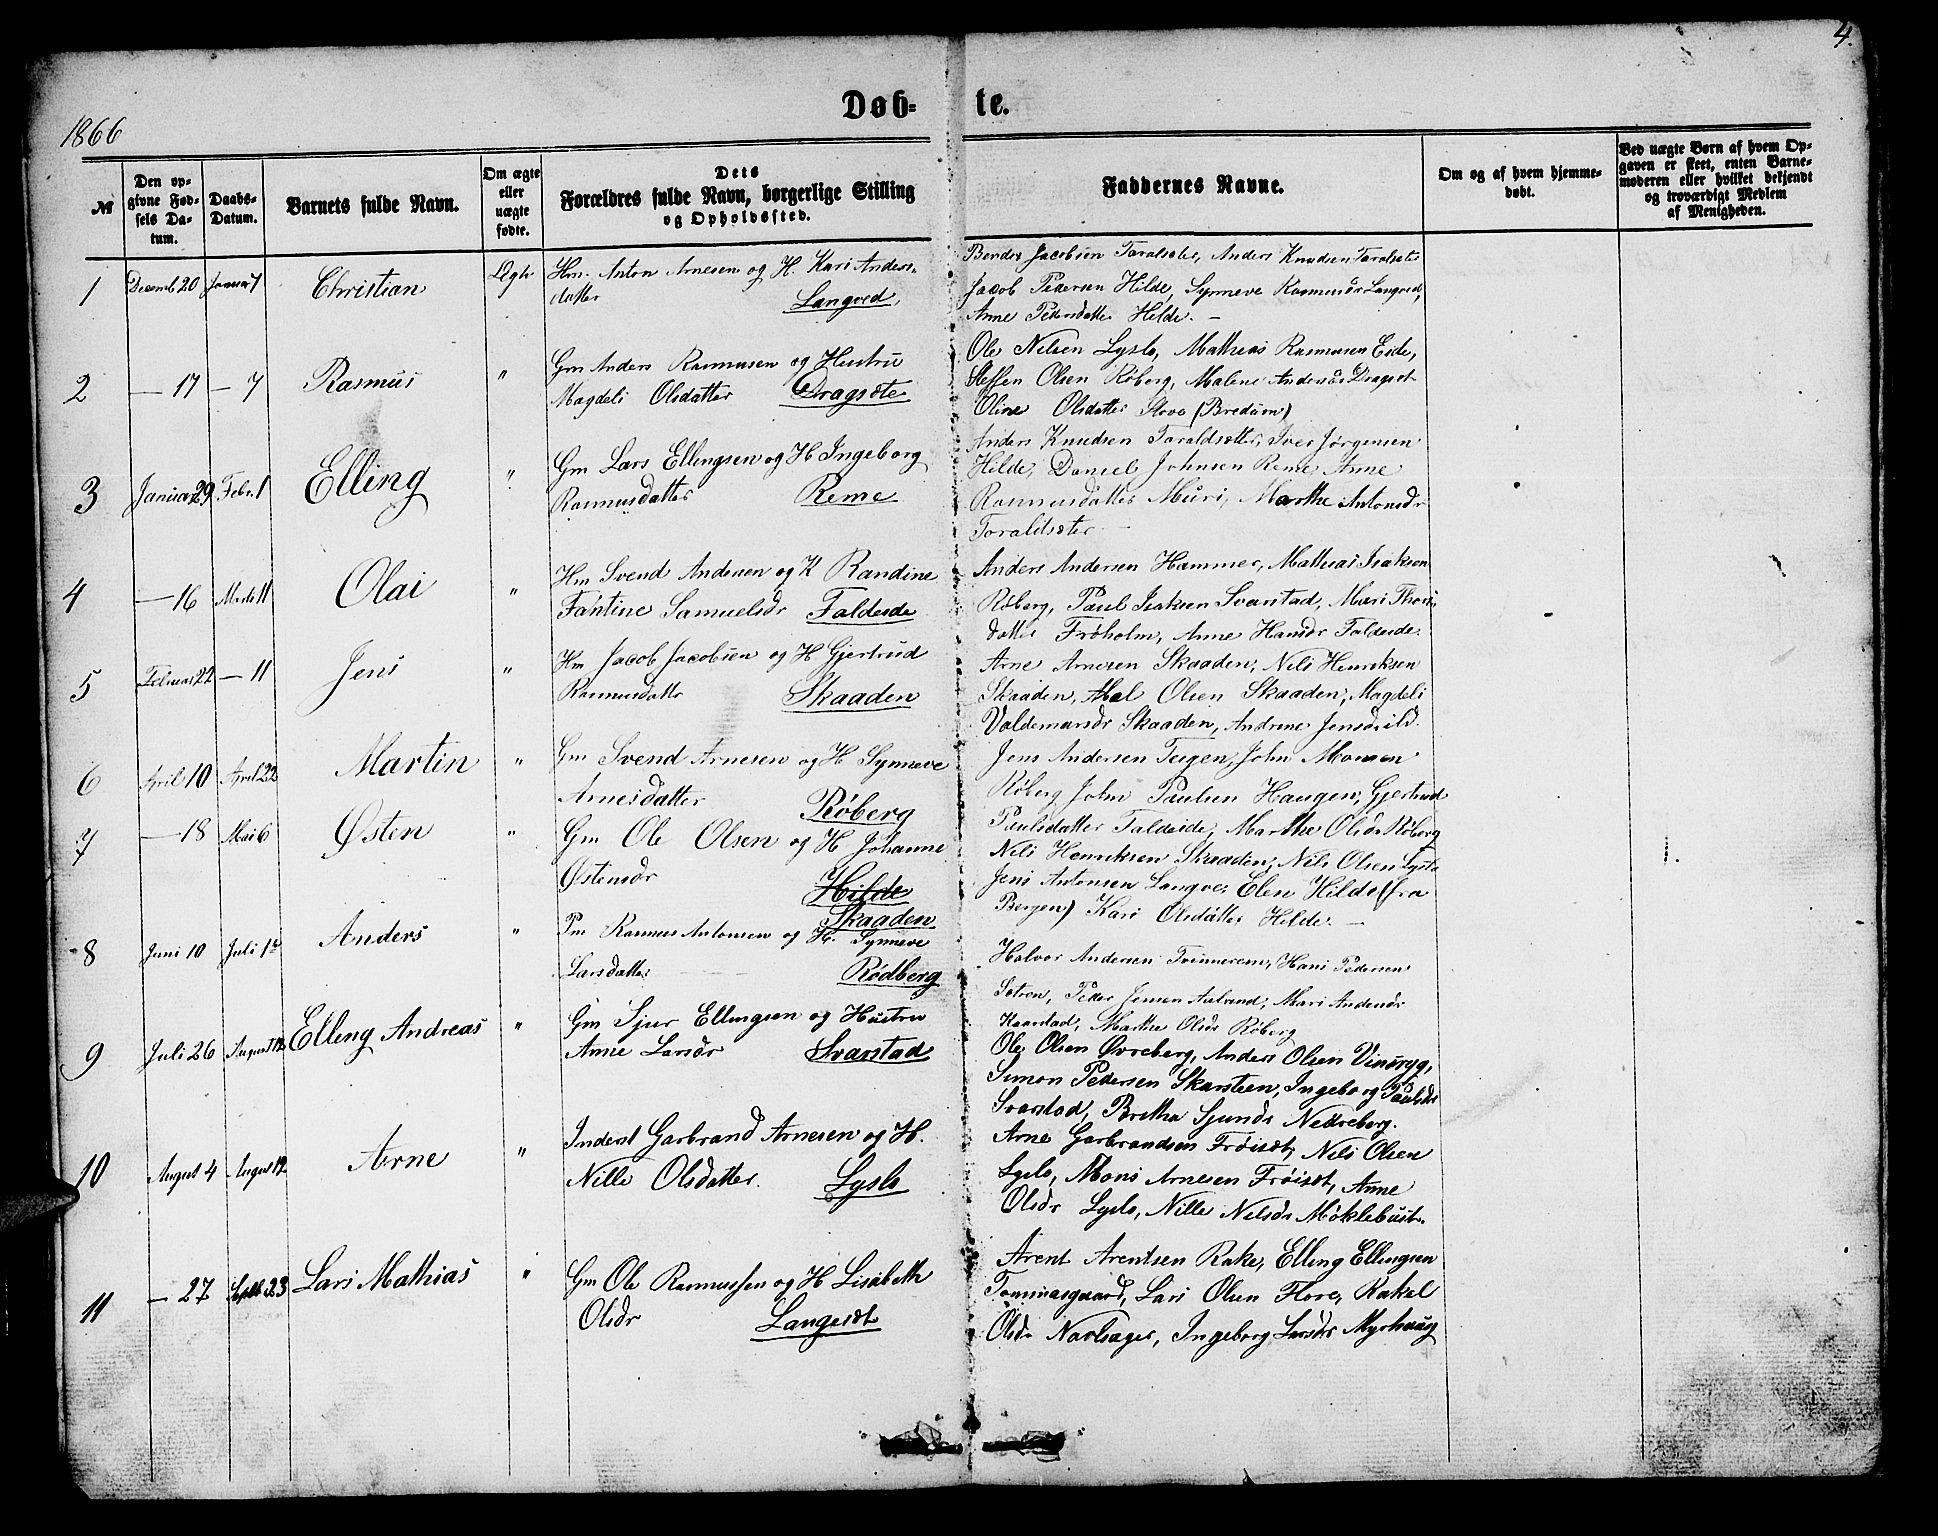 4.
1866
Døb- te.
№
Den opgivne Fødsels Datum.
Daabs-Datum.
Barnets fulde Navn.
Om ægte eller uægte fødte.
Dets Forældres fulde Navn, borgerlige Stilling og Opholdssted.
Faddernes Navne.
Om og af hvem hjemmedøbt.
Ved uægte Børn af hvem Opgaven er skeet, enten Barnemoderen eller hvilket bekjendt og troværdigt Medlem af Menigheden.
1 Decemb 20 Januar 7 Christian Ægte
Hm. Anton Arnesen og H. Kari Anders-
datter Langved
Jacobsen Taraldsæter, Anders Knudsen Taraldsæter
Jacob Pedersen Hilde, Synneve Rasmusdr Langved,
Anne Pedersdatter Hilde. —
2 — 17 — 7 Rasmus "
Gm Anders Rasmusen og Hustru
Magdeli Olsdatter Dragsæte
Ole Nilsen Lyslo, Mathias Rasmusen Eide,
Steffen Olsen Røberg, Malene Andersdr Dragsæt
Oline Olsdatter (Bredum)
3 Januar 29 Febr. 1 Elling "
Gm Lars Ellingsen og H Ingeborg
Rasmusdatter Reme
Anders Knudsen Taraldsætter, Iver Jørgensen
Hilde, Daniel Johnsen Reme Anne
Rasmusdatter Muri, Marthe Antonsdr
Taraldsæter —
4 — 16 Marts 11 Olai "
Hm Svend Andersen og K Randine
Fantine Samuelsdr Faldeide
Anders Andersen Hammer, Mathias Isaksen
Røberg, Paul Isaksen Svarstad, Mari Thors
datter Frøholm, Anne Hansdr Faldeide.
5 Februar 22 — 11 Jens "
Hm Jacob Jacobsen og H Gjertrud
Rasmusdatter Skaaden
Arne Arnesen Skaaden, Nils Henriksen
Skaaden, Olsen Skaaden, Magdeli
Valdemarsdr Skaaden, Andrine
6 April 10 April 22 Martin "
Gm Svend Arnesen og H Synneve
Arnesdatter Røberg
Jens Andersen Teigen, John Monsen
Røberg John Paulsen Haugen, Gjertrud
Paulsdatter Faldeide, Marthe Olsdr Røberg
7 — 18 Mai 6 Østen "
Gm Ole Olsen og H Johanne
Østensdr Hilde
Skaaden
Nils Henriksen Skaaden, Nils Olsen Lyslo
Jens Antonsen Langve, Elen Hilde (fra
Bergen) Kari Olsdatter Hilde. —
8 Juni 10 Juli 1ste Anders "
Pm Rasmus Antonsen og H. Synneve
Larsdatter Rødberg
Halvor Andersen Tvinnerem, Hans Pedersen
Sætren, Peder Jensen Aaland, Mari Andersdr
Kaarstad, Marthe Olsdr Røberg
9 Juli 26 August 12 Elling Andreas "
Gm Sjur Ellingsen og Hustru
Anne Larsdr Svarstad
Ole Olsen Øvreberg, Anders Olsen Vinsryg,
Simon Pedersen Skarsteen, Ingeborg Paulsdr
Svarstad, Brithe Sjursdr Nedreberg.
10 August 4 August 12 Arne "
Inderst Garbrand Arnesen og H.
Nille Olsdatter. Lyslo
Arne Garbrandsen Frøisæt, Nils Olsen
Lyslo, Mons Arnesen Frøisæt, Anne
Olsdr Lyslo, Nille Nilsdr Møklebust.
11 — 27 Septb 23 Lars Mathias "
Gm Ole Rasmussen og H Lisabeth
Olsdr Langesæt
Arent Arentsen Rake, Elling Ellingsen
Tommasgaard, Lars Olsen Flore, Rakel
Olsdr Navlsager, Ingeborg Larsdr Myrhaug